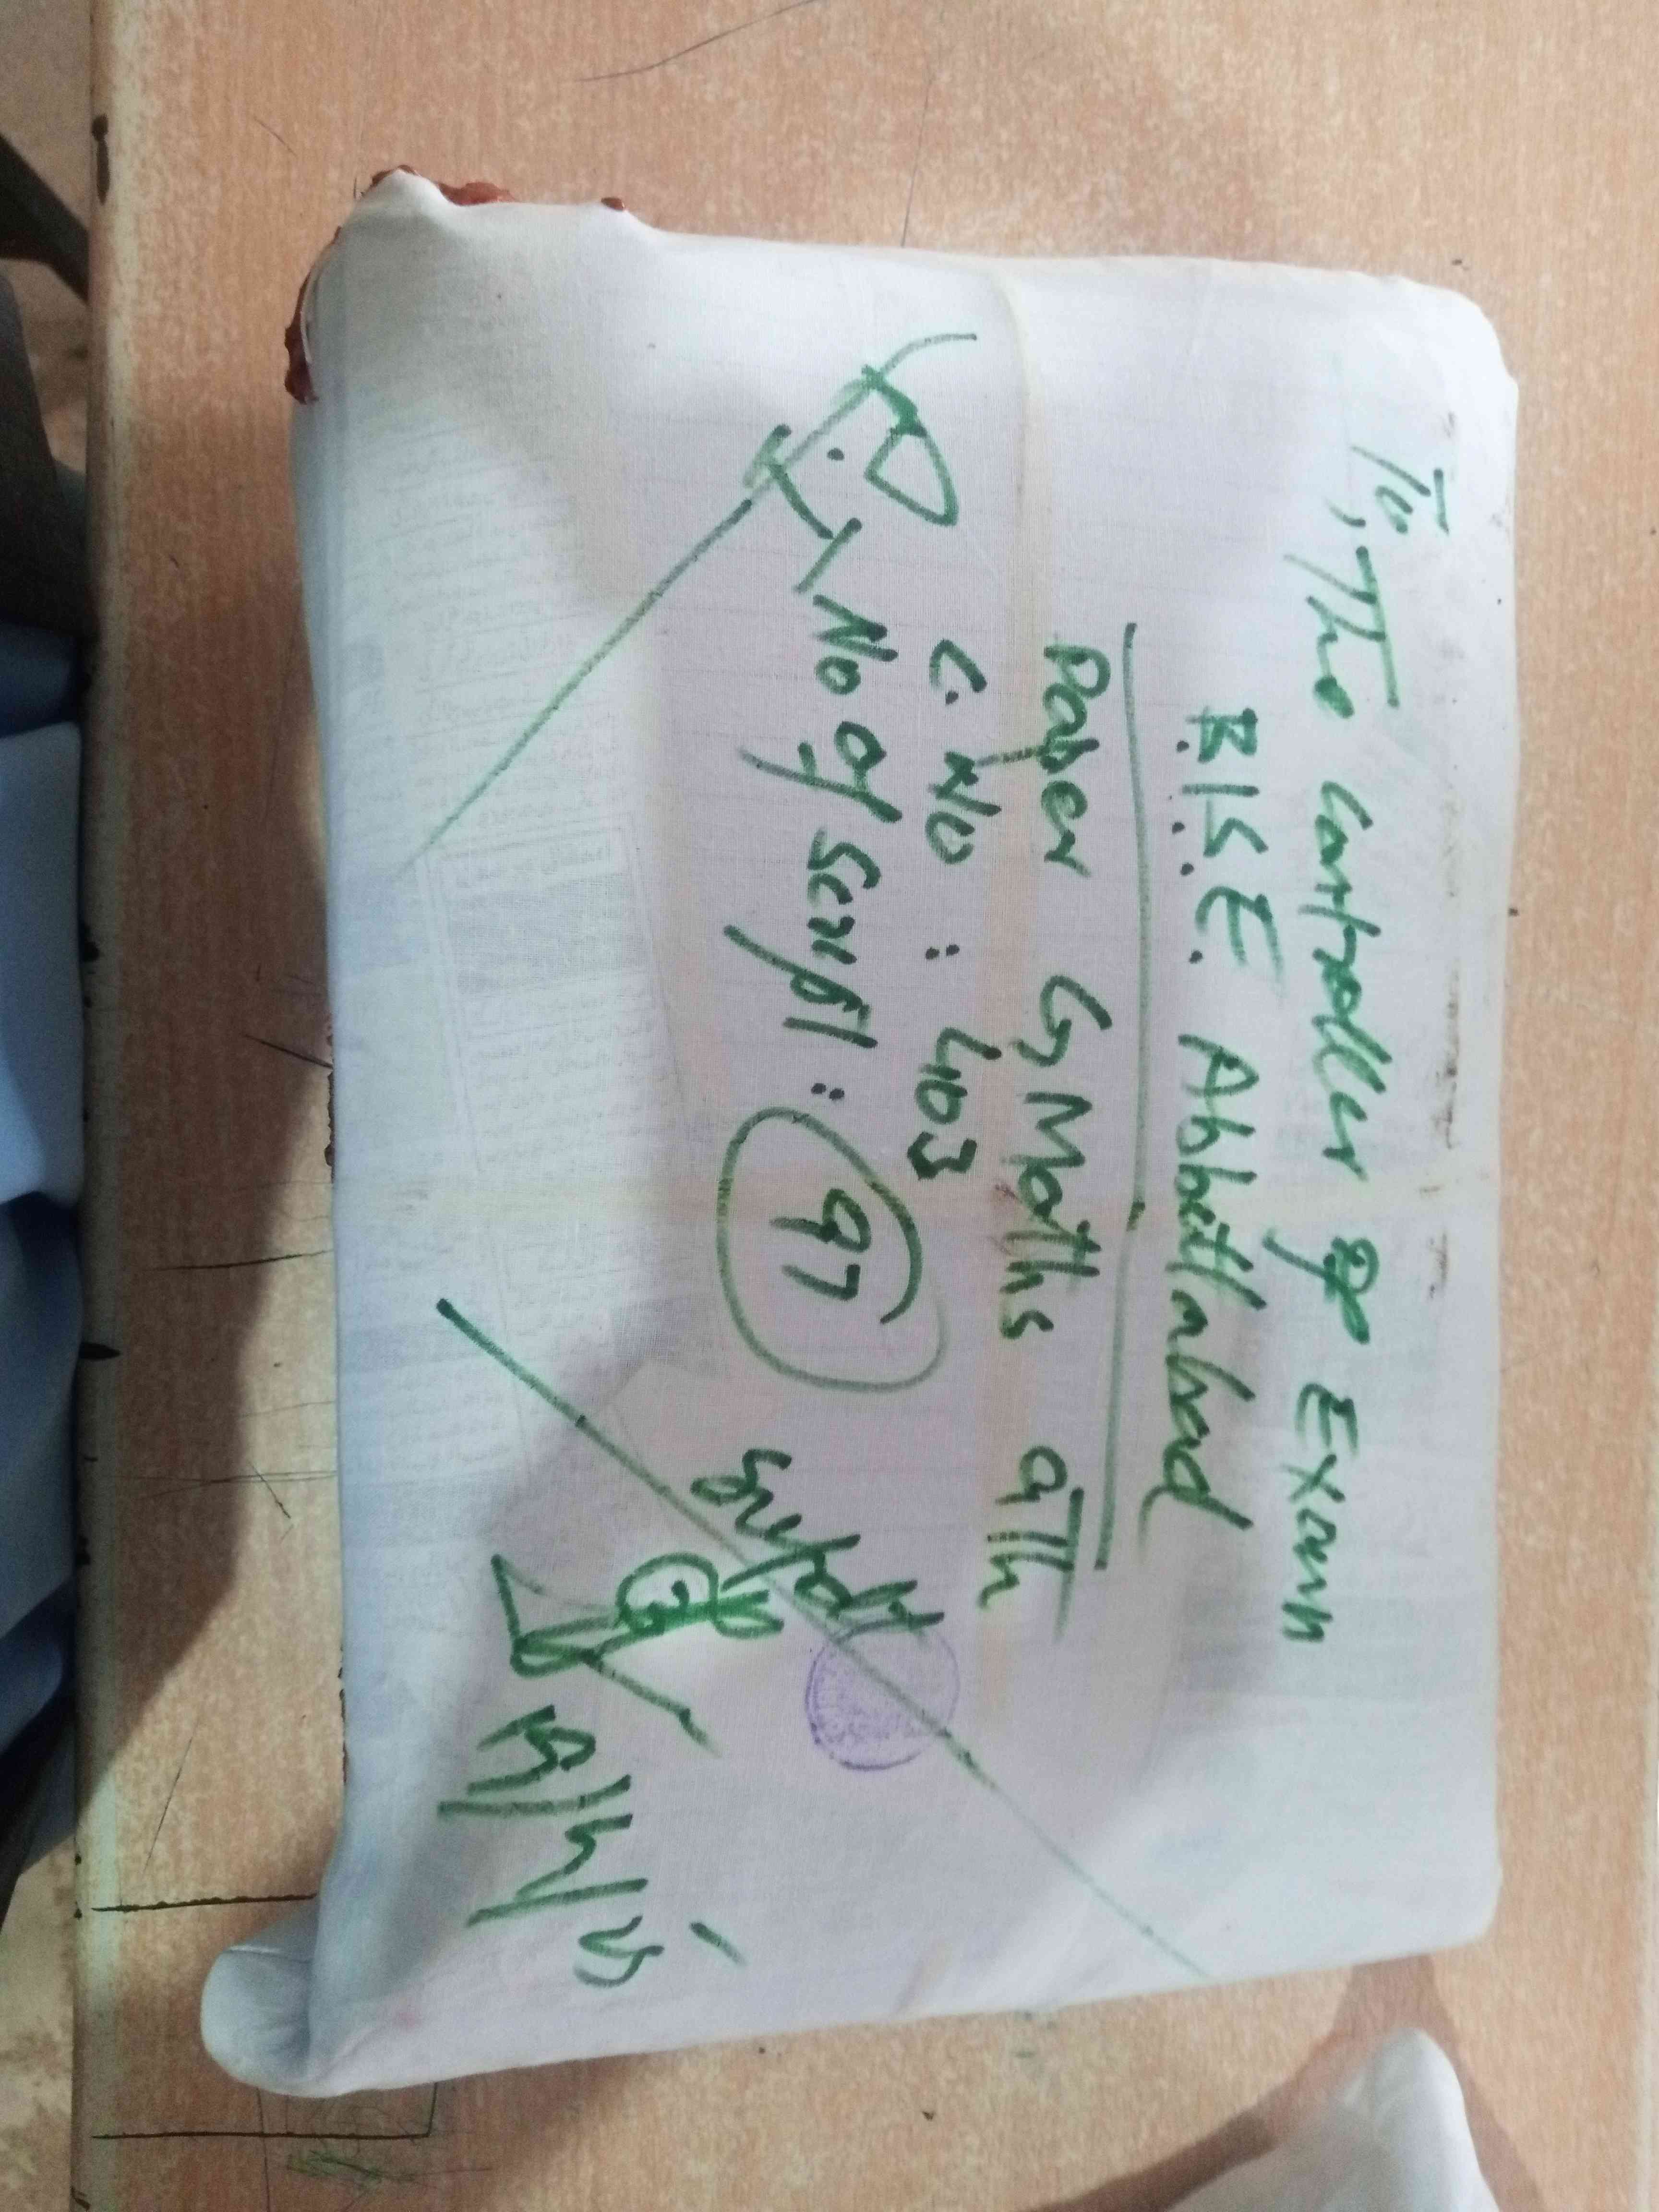 To, The Controller of Exam
B.I.S.E. Abbottabad
Paper G, Maths 9Th
C. No : 403
No of Script : 97
Supdt